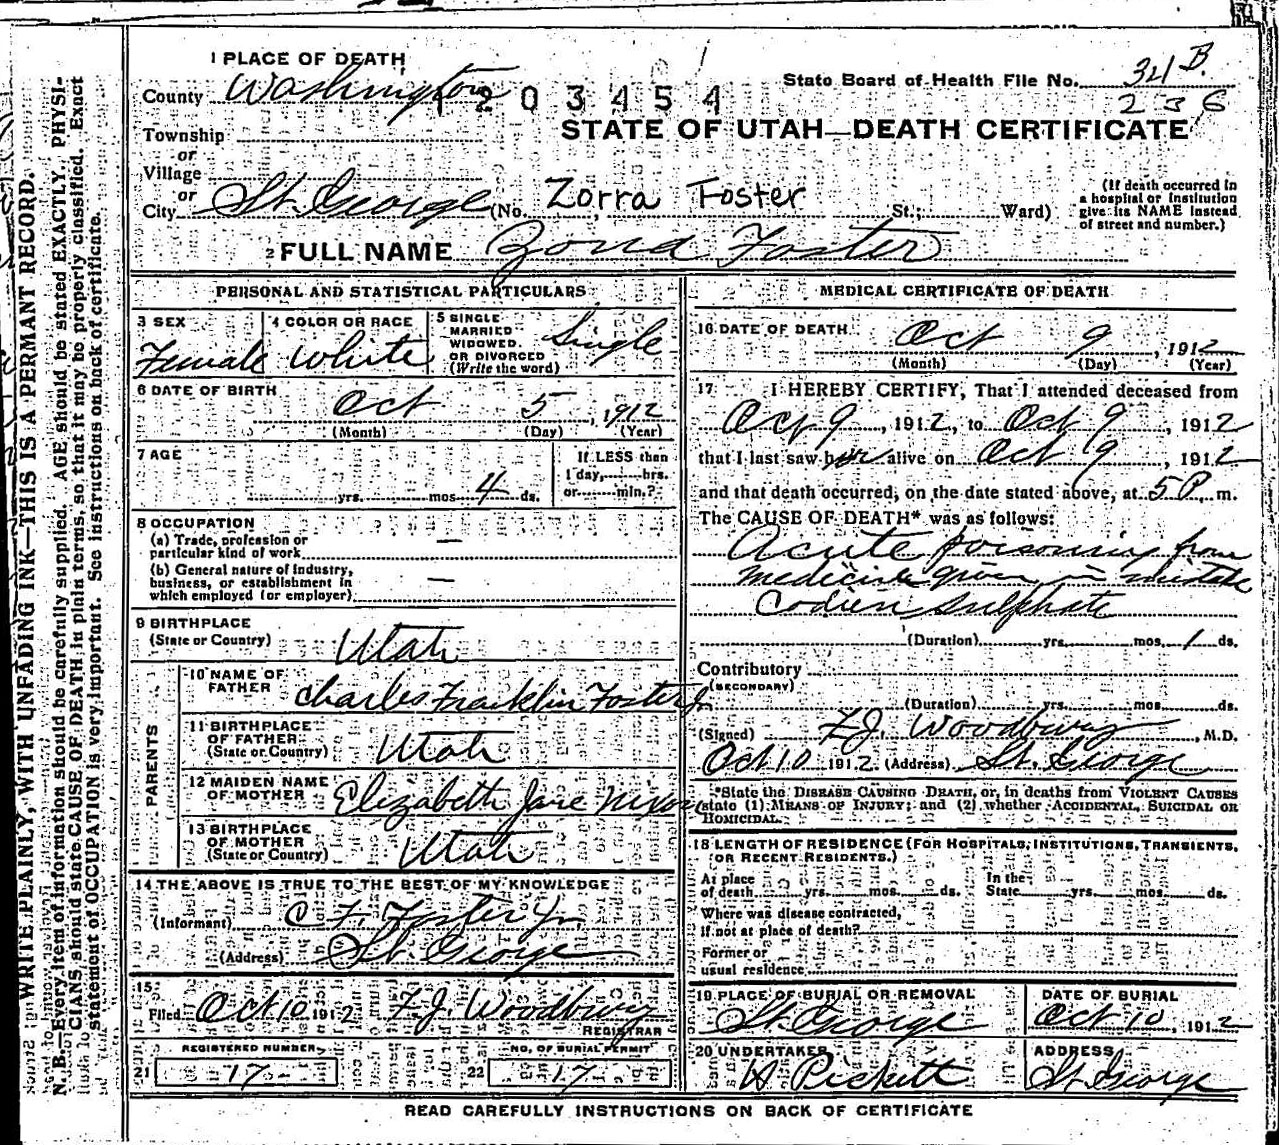 1 PLACE OF DEATH
State Board of Health File No. 34 B.
County Washington
1203454
236
STATE OF UTAH—DEATH CERTIFICATE
Township
or
Village
or
City St. George (No. Zorra Foster St.; Ward)
(If death occurred in
a hospital or institution
give its NAME instead
of street and number.)
2 FULL NAME Zorra Foster
PERSONAL AND STATISTICAL PARTICULARS
3 SEX
Female
4 COLOR OR RACE
White
5 SINGLE
MARRIED
WIDOWED.
OR DIVORCED
(Write the word)
Single
6 DATE OF BIRTH
Oct 5, 1912
(Month) (Day) (Year)
7 AGE
yrs. mos. 4 ds.
If LESS than
1 day, hrs.
or min.?
8 OCCUPATION
(a) Trade, profession or
particular kind of work —
(b) General nature of industry,
business, or establishment in
which employed (or employer) —
9 BIRTHPLACE
(State or Country) Utah
PARENTS
10 NAME OF
FATHER Charles Franklin Foster Jr
11 BIRTHPLACE
OF FATHER
(State or Country) Utah
12 MAIDEN NAME
OF MOTHER Elizabeth Jane Nixon
13 BIRTHPLACE
OF MOTHER
(State or Country) Utah
14 THE ABOVE IS TRUE TO THE BEST OF MY KNOWLEDGE
(Informant) C F. Foster Jr,
(Address) St. George
15
Filed Oct 10 1912 F. J. Woodbury
REGISTRAR
REGISTERED NUMBER
21 17
NO. OF BURIAL PERMIT
22 17
MEDICAL CERTIFICATE OF DEATH
16 DATE OF DEATH
Oct 9, 1912
(Month) (Day) (Year)
17 I HEREBY CERTIFY, That I attended deceased from
Oct 9, 1912, to Oct 9, 1912
that I last saw her alive on Oct 9, 1912
and that death occurred, on the date stated above, at 5 P. m.
The CAUSE OF DEATH* was as follows:
Acute poisoning from
medicine given in mistake
Codien Sulphate
(Duration) yrs. mos. 1 ds.
Contributory
(SECONDARY)
(Duration) yrs. mos. ds.
(Signed) F. J. Woodbury, M.D.
Oct 10 1912 (Address) St. George
*State the DISEASE CAUSING DEATH, or, in deaths from VIOLENT CAUSES
state (1) MEANS OF INJURY; and (2) whether ACCIDENTAL, SUICIDAL OR
HOMICIDAL.
18 LENGTH OF RESIDENCE (FOR HOSPITALS, INSTITUTIONS, TRANSIENTS,
OR RECENT RESIDENTS.)
At place
of death yrs. mos. ds.
In the
State yrs. mos. ds.
Where was disease contracted,
if not at place of death?
Former or
usual residence
19 PLACE OF BURIAL OR REMOVAL
St. George
DATE OF BURIAL
Oct 10, 1912
20 UNDERTAKER
W Pickett
ADDRESS
St. George
READ CAREFULLY INSTRUCTIONS ON BACK OF CERTIFICATE
WRITE PLAINLY, WITH UNFADING INK—THIS IS A PERMANT RECORD.
N. B.—Every item of information should be carefully supplied. AGE should be stated EXACTLY. PHYSI-
CIANS should state CAUSE OF DEATH in plain terms, so that it may be properly classified. Exact
statement of OCCUPATION is very important. See instructions on back of certificate.